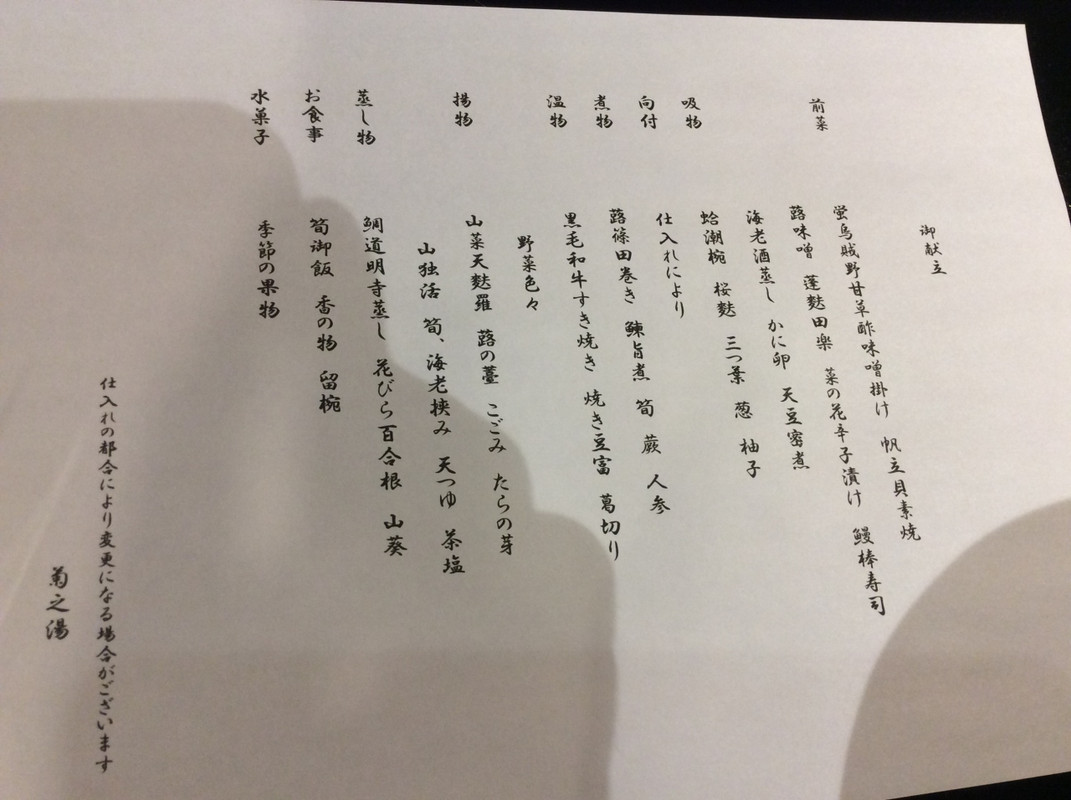 御献立
前菜 螢烏賊野甘草酢味噌掛け 帆立貝素焼
蕗味噌 蓬麩田楽 菜の花辛子漬け 鰻棒寿司
海老酒蒸し かに卵 天豆蜜煮
吸物 蛤潮椀 桜麩 三つ葉 葱 柚子
向付 仕入れにより
煮物 蕗篠田巻き 鰊旨煮 筍 蕨 人参
温物 黒毛和牛すき焼き 焼き豆富 葛切り
野菜色々
揚物 山菜天麩羅 蕗の薹 こごみ たらの芽
山独活 筍、海老挟み 天つゆ 茶塩
蒸し物 鯛道明寺蒸し 花びら百合根 山葵
お食事 筍御飯 香の物 留椀
水菓子 季節の果物
仕入れの都合により変更になる場合がございます
菊之湯